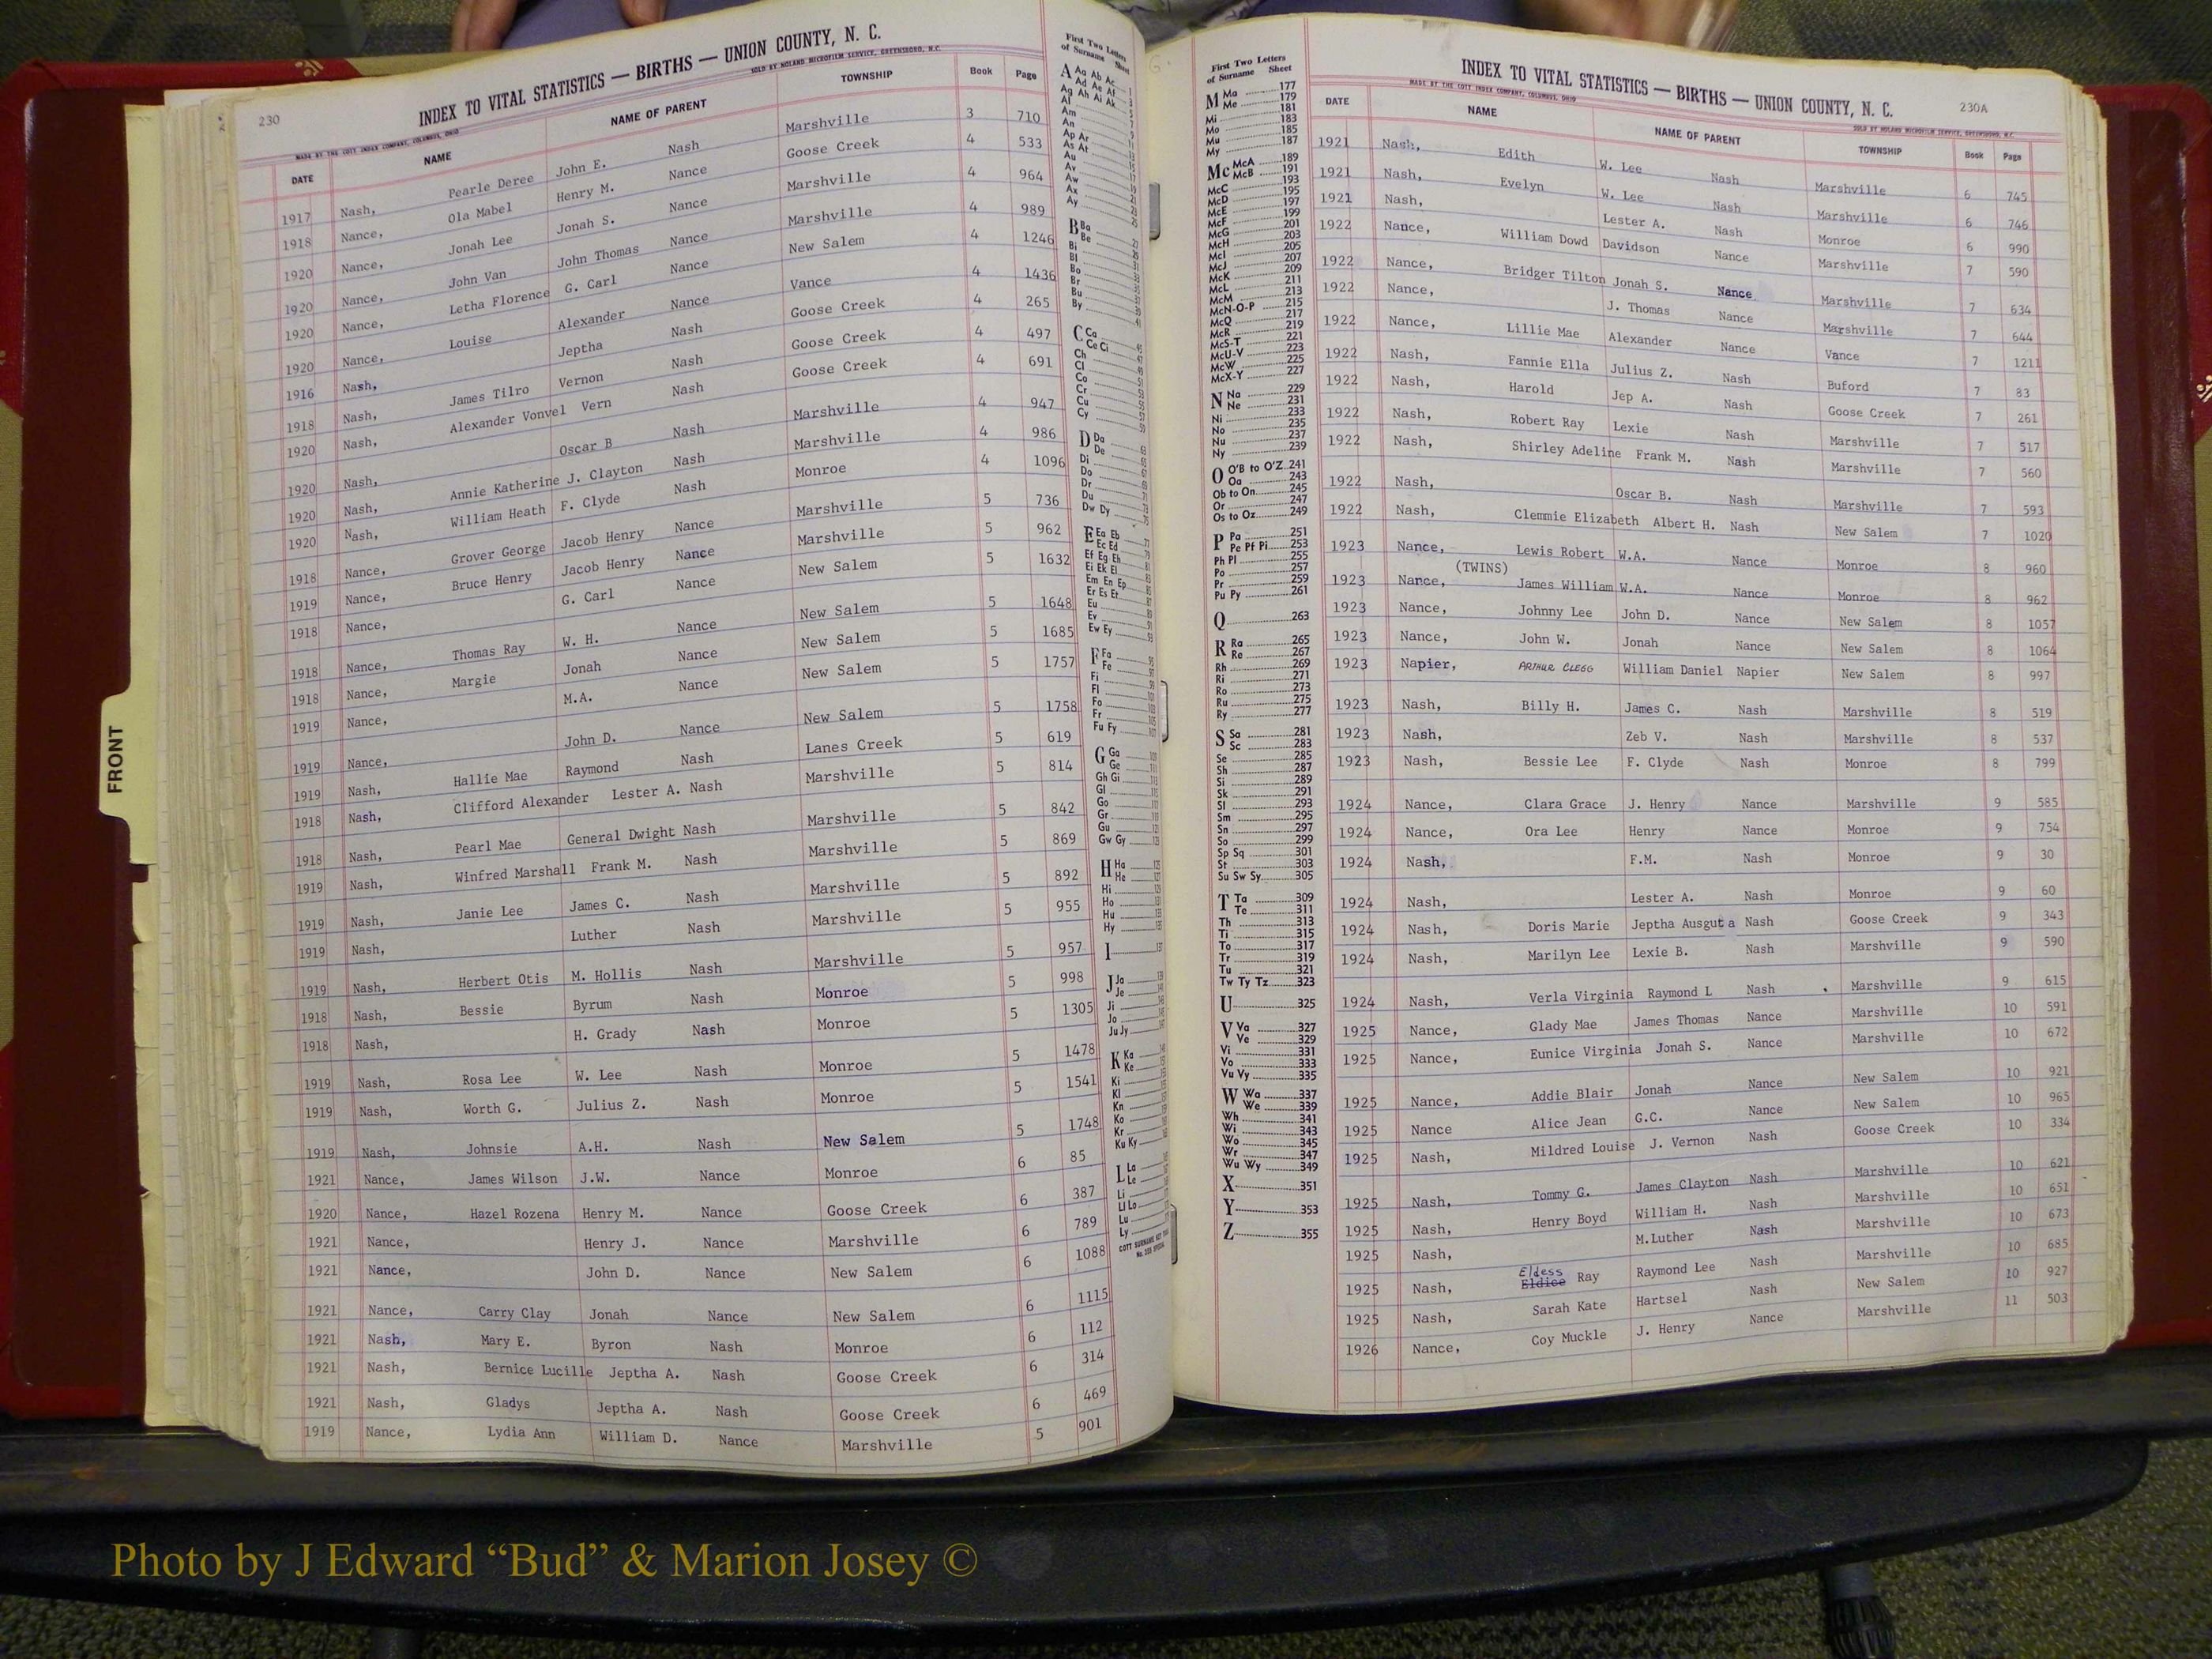 230
INDEX TO VITAL STATISTICS — BIRTHS — UNION COUNTY, N. C.
MADE BY THE COTT INDEX COMPANY, COLUMBUS, OHIO SOLD BY NOLAND MICROFILM SERVICE, GREENSBORO, N.C.
DATE NAME NAME OF PARENT TOWNSHIP Book Page
1917 Nash, Pearle Deree John E. Nash Marshville 3 710
1918 Nance, Ola Mabel Henry M. Nance Goose Creek 4 533
1920 Nance, Jonah Lee Jonah S. Nance Marshville 4 964
1920 Nance, John Van John Thomas Nance Marshville 4 989
1920 Nance, Letha Florence G. Carl Nance New Salem 4 1246
1920 Nance, Louise Alexander Nance Vance 4 1436
1916 Nash, Jeptha Nash Goose Creek 4 265
1918 Nash, James Tilro Vernon Nash Goose Creek 4 497
1920 Nash, Alexander Vonvel Vern Nash Goose Creek 4 691
1920 Nash, Oscar B Nash Marshville 4 947
1920 Nash, Annie Katherine J. Clayton Nash Marshville 4 986
1920 Nash, William Heath F. Clyde Nash Monroe 4 1096
1918 Nance, Grover George Jacob Henry Nance Marshville 5 736
1919 Nance, Bruce Henry Jacob Henry Nance Marshville 5 962
1918 Nance, G. Carl Nance New Salem 5 1632
1918 Nance, Thomas Ray W. H. Nance New Salem 5 1648
1918 Nance, Margie Jonah Nance New Salem 5 1685
1919 Nance, M.A. Nance New Salem 5 1757
1919 Nance, John D. Nance New Salem 5 1758
1919 Nash, Hallie Mae Raymond Nash Lanes Creek 5 619
1918 Nash, Clifford Alexander Lester A. Nash Marshville 5 814
1918 Nash, Pearl Mae General Dwight Nash Marshville 5 842
1919 Nash, Winfred Marshall Frank M. Nash Marshville 5 869
1919 Nash, Janie Lee James C. Nash Marshville 5 892
1919 Nash, Luther Nash Marshville 5 955
1919 Nash, Herbert Otis M. Hollis Nash Marshville 5 957
1918 Nash, Bessie Byrum Nash Monroe 5 998
1918 Nash, H. Grady Nash Monroe 5 1305
1919 Nash, Rosa Lee W. Lee Nash Monroe 5 1478
1919 Nash, Worth G. Julius Z. Nash Monroe 5 1541
1919 Nash, Johnsie A.H. Nash New Salem 5 1748
1921 Nance, James Wilson J.W. Nance Monroe 6 85
1920 Nance, Hazel Rozena Henry M. Nance Goose Creek 6 387
1921 Nance, Henry J. Nance Marshville 6 789
1921 Nance, John D. Nance New Salem 6 1088
1921 Nance, Carry Clay Jonah Nance New Salem 6 1115
1921 Nash, Mary E. Byron Nash Monroe 6 112
1921 Nash, Bernice Lucille Jeptha A. Nash Goose Creek 6 314
1921 Nash, Gladys Jeptha A. Nash Goose Creek 6 469
1919 Nance, Lydia Ann William D. Nance Marshville 5 901
FRONT
First Two Letters
of Surname Sheet
A Aa Ab Ac
Ad Ae Af
Ag Ah Ai Ak
Al
Am
An
Ap Ar
As At
Au
Av
Aw
Ax
Ay
B Ba
Be
Bi
Bl
Bo
Br
Bu
By
C Ca
Ce Ci
Ch
Cl
Co
Cr
Cu
Cy
D Da
De
Di
Do
Dr
Du
Dw Dy
E Ea Eb
Ec Ed
Ef Eg Eh
Ei Ek El
Em En Ep
Er Es Et
Eu
Ev
Ew Ey
F Fa
Fe
Fi
Fl
Fo
Fr
Fu Fy
G Ga
Ge
Gh Gi
Gl
Go
Gr
Gu
Gw Gy
H Ha
He
Hi
Ho
Hu
Hy
I
J Ja
Je
Ji
Jo
Ju Jy
K Ka
Ke
Ki
Kl
Kn
Ko
Kr
Ku Ky
L La
Le
Li
Ll Lo
Lu
Ly
First Two Letters
of Surname Sheet
M Ma 177
Me 179
Mi 181
Mo 183
Mu 185
My 187
Mc McA 189
McB 191
McC 193
McD 195
McE 197
McF 199
McG 201
McH 203
McI 205
McJ 207
McK 209
McL 211
McM 213
McN-O-P 215
McQ 217
McR 219
McS-T 221
McU-V 223
McW 225
McX-Y 227
N Na 229
Ne 231
Ni 233
No 235
Nu 237
Ny 239
O O'B to O'Z 241
Oa 243
Ob to On 245
Or 247
Os to Oz 249
P Pa 251
Pe Pf Pi 253
Ph Pl 255
Po 257
Pr 259
Pu Py 261
Q 263
R Ra 265
Re 267
Rh 269
Ri 271
Ro 273
Ru 275
Ry 277
S Sa 281
Sc 283
Se 285
Sh 287
Si 289
Sk 291
Sl 293
Sm 295
Sn 297
So 299
Sp Sq 301
St 303
Su Sw Sy 305
T Ta 309
Te 311
Th 313
Ti 315
To 317
Tr 319
Tu 321
Tw Ty Tz 323
U 325
V Va 327
Ve 329
Vi 331
Vo 333
Vu Vy 335
W Wa 337
We 339
Wh 341
Wi 343
Wo 345
Wr 347
Wu Wy 349
X 351
Y 353
Z 355
INDEX TO VITAL STATISTICS — BIRTHS — UNION COUNTY, N. C. 230A
MADE BY THE COTT INDEX COMPANY, COLUMBUS, OHIO SOLD BY NOLAND MICROFILM SERVICE, GREENSBORO, N.C.
DATE NAME NAME OF PARENT TOWNSHIP Book Page
1921 Nash, Edith W. Lee Nash Marshville 6 745
1921 Nash, Evelyn W. Lee Nash Marshville 6 746
1921 Nash, Lester A. Nash Monroe 6 990
1922 Nance, William Dowd Davidson Nance Marshville 7 590
1922 Nance, Bridger Tilton Jonah S. Nance Marshville 7 634
1922 Nance, J. Thomas Nance Marshville 7 644
1922 Nance, Lillie Mae Alexander Nance Vance 7 1211
1922 Nash, Fannie Ella Julius Z. Nash Buford 7 83
1922 Nash, Harold Jep A. Nash Goose Creek 7 261
1922 Nash, Robert Ray Lexie Nash Marshville 7 517
1922 Nash, Shirley Adeline Frank M. Nash Marshville 7 560
1922 Nash, Oscar B. Nash Marshville 7 593
1922 Nash, Clemmie Elizabeth Albert H. Nash New Salem 7 1020
1923 Nance, Lewis Robert W.A. Nance Monroe 8 960
(TWINS)
1923 Nance, James William W.A. Nance Monroe 8 962
1923 Nance, Johnny Lee John D. Nance New Salem 8 1057
1923 Nance, John W. Jonah Nance New Salem 8 1064
1923 Napier, ARTHUR CLEGG William Daniel Napier New Salem 8 997
1923 Nash, Billy H. James C. Nash Marshville 8 519
1923 Nash, Zeb V. Nash Marshville 8 537
1923 Nash, Bessie Lee F. Clyde Nash Monroe 8 799
1924 Nance, Clara Grace J. Henry Nance Marshville 9 585
1924 Nance, Ora Lee Henry Nance Monroe 9 754
1924 Nash, F.M. Nash Monroe 9 30
1924 Nash, Lester A. Nash Monroe 9 60
1924 Nash, Doris Marie Jeptha Ausguta Nash Goose Creek 9 343
1924 Nash, Marilyn Lee Lexie B. Nash Marshville 9 590
1924 Nash, Verla Virginia Raymond L Nash Marshville 9 615
1925 Nance, Glady Mae James Thomas Nance Marshville 10 591
1925 Nance, Eunice Virginia Jonah S. Nance Marshville 10 672
1925 Nance, Addie Blair Jonah Nance New Salem 10 921
1925 Nance Alice Jean G.C. Nance New Salem 10 965
1925 Nash, Mildred Louise J. Vernon Nash Goose Creek 10 334
1925 Nash, Tommy G. James Clayton Nash Marshville 10 621
1925 Nash, Henry Boyd William H. Nash Marshville 10 651
1925 Nash, M.Luther Nash Marshville 10 673
Eldess
1925 Nash, Eldice Ray Raymond Lee Nash Marshville 10 685
1925 Nash, Sarah Kate Hartsel Nash New Salem 10 927
1926 Nance, Coy Muckle J. Henry Nance Marshville 11 503
Photo by J Edward “Bud” & Marion Josey ©